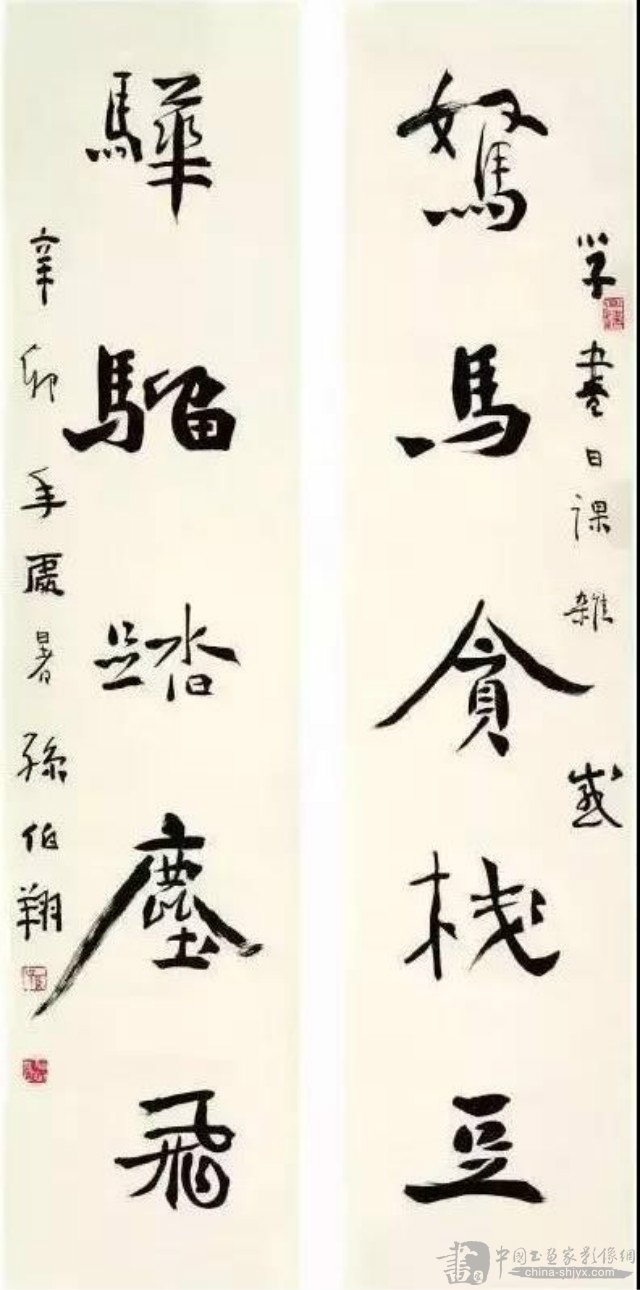 學書日課雜感
駑馬貪棧豆
驊騮踏塵飛
辛卯年處暑孫伯翔
中國書畫家影像網
china-shjyx.com